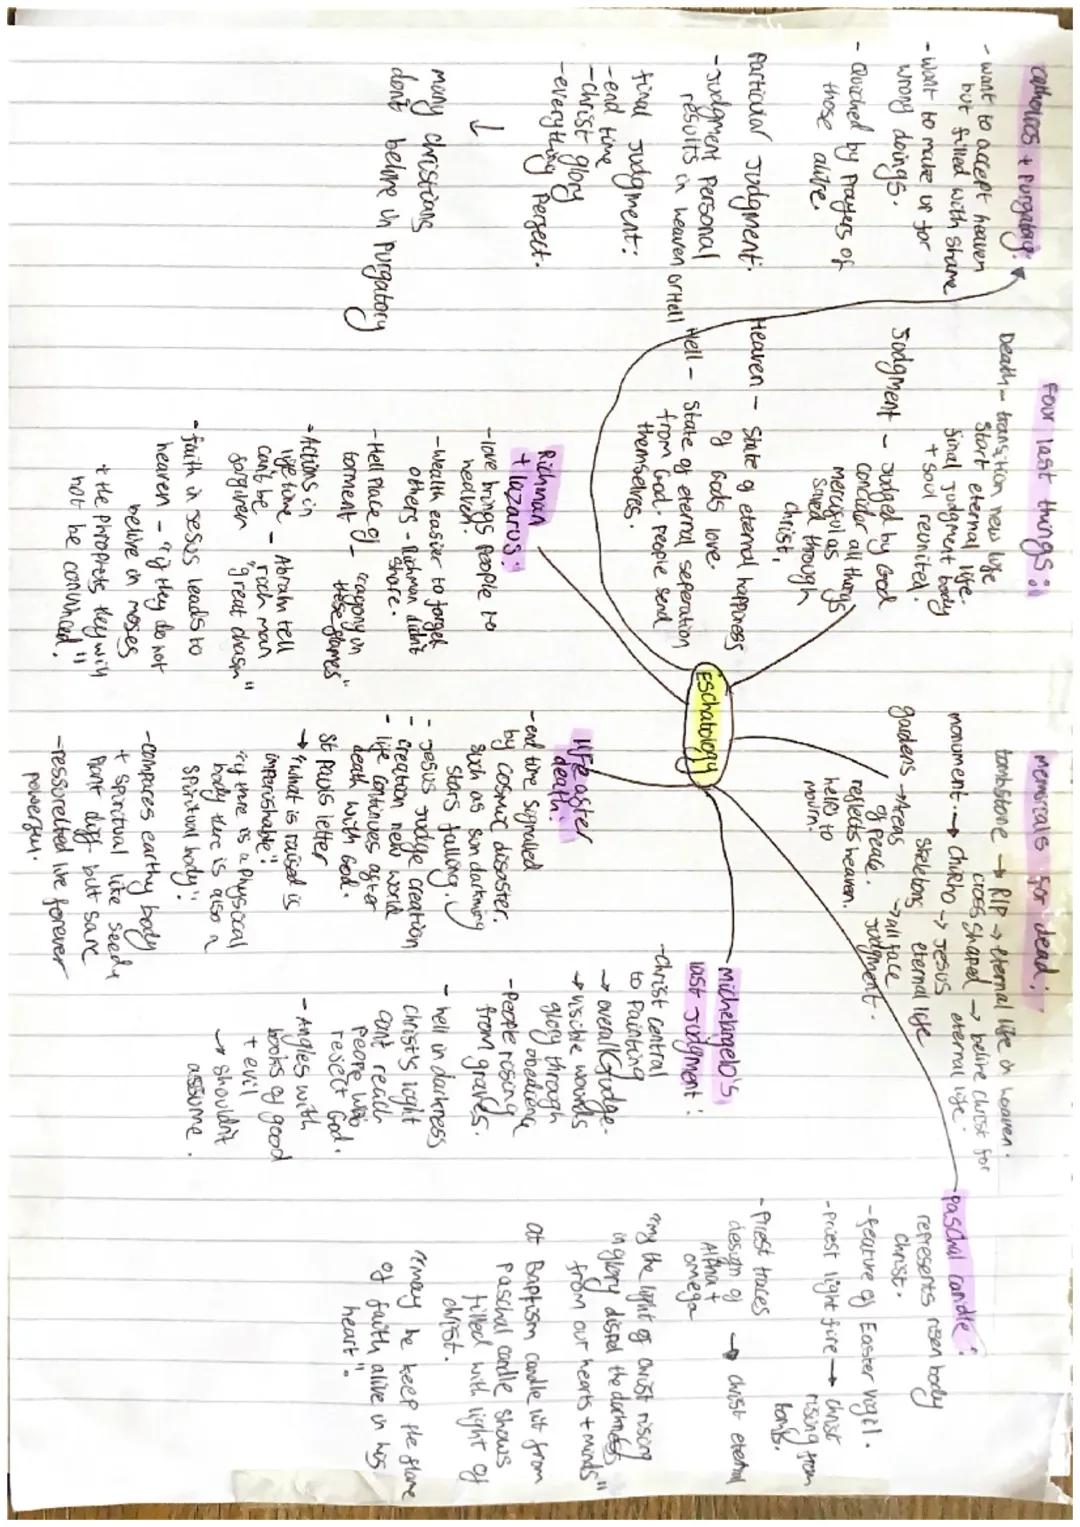 Catholics + Purgatory:
- want to accept heaven
but filled with shame
- want to make up for
wrong doings.
- Quiched by Prayers of
those alive.
Particular Judgment:
- Judgment Personal
results in heaven or Hell
final Judgment:
- end time
- christ glory
- everything perfect.
↓
many christians
don't belive in Purgatory
Four last things:
Death - transition new life
start eternal life.
final Judgment body
+ soul reunited.
Judgment - Judged by God
concidor all things
merciful as
saved through
christ.
Heaven - State of eternal happiness
of Gods love.
Hell - State of eternal seperation
from God. People send
themselves.
Richman
+ lazarus:
- love brings people to
needed.
- Wealth easier to forget
others - Richman didn't
share.
- Hell Place of
torment - "agony in
these flames"
- Actions in
lifetime - Abraham tell
can't be rich man
forgiven "great chasm"
- faith in Jesus leads to
heaven - "if they do not
belive in moses
+ the Prophets they will
not be convinced."
Eschatology
memorials for dead:
tombstone → RIP → eternal life in heaven.
cross shaped → belive christ for
eternal life.
monument → Church → Jesus
skeletons eternal life
→ all face
Judgment.
gardens → Areas
of peace.
reflects heaven.
helps to
mourn.
life after
death:
- end time signalled
by cosmic disaster.
such as sun darkning
stars falling.
- Jesus Judge creation
- creation new world
- life continues after
death with God.
St Pauls letter
→ "what is raised is
imperishable"
"if there is a Physical
body there is also a
spiritual body"
- compares earthy body
+ spiritual like seed +
Plant diff- but same
- ressurected live forever
powerful.
michelangelo's
last Judgment:
- Christ central
to Painting
→ overall Judge.
→ visible wounds
glory through
obedience
- People rising
from graves.
- hell in darkness
christ's light
cant reach
people who
reject God.
- Angles with
books of good
+ evil
→ shouldn't
assume.
- Paschal candle:
represents risen body
christ.
- feature of Easter vigil.
- Priest light fire → christ
rising from
tomb.
- Priest traces
design of → christ eternal
Alpha +
omega
"my the light of christ rising
in glory dispel the darkness
from our hearts + minds"
at Baptism candle lit from
Paschal candle shows
filled with light of
christ.
"may he keep the flame
of faith alive in his
heart".